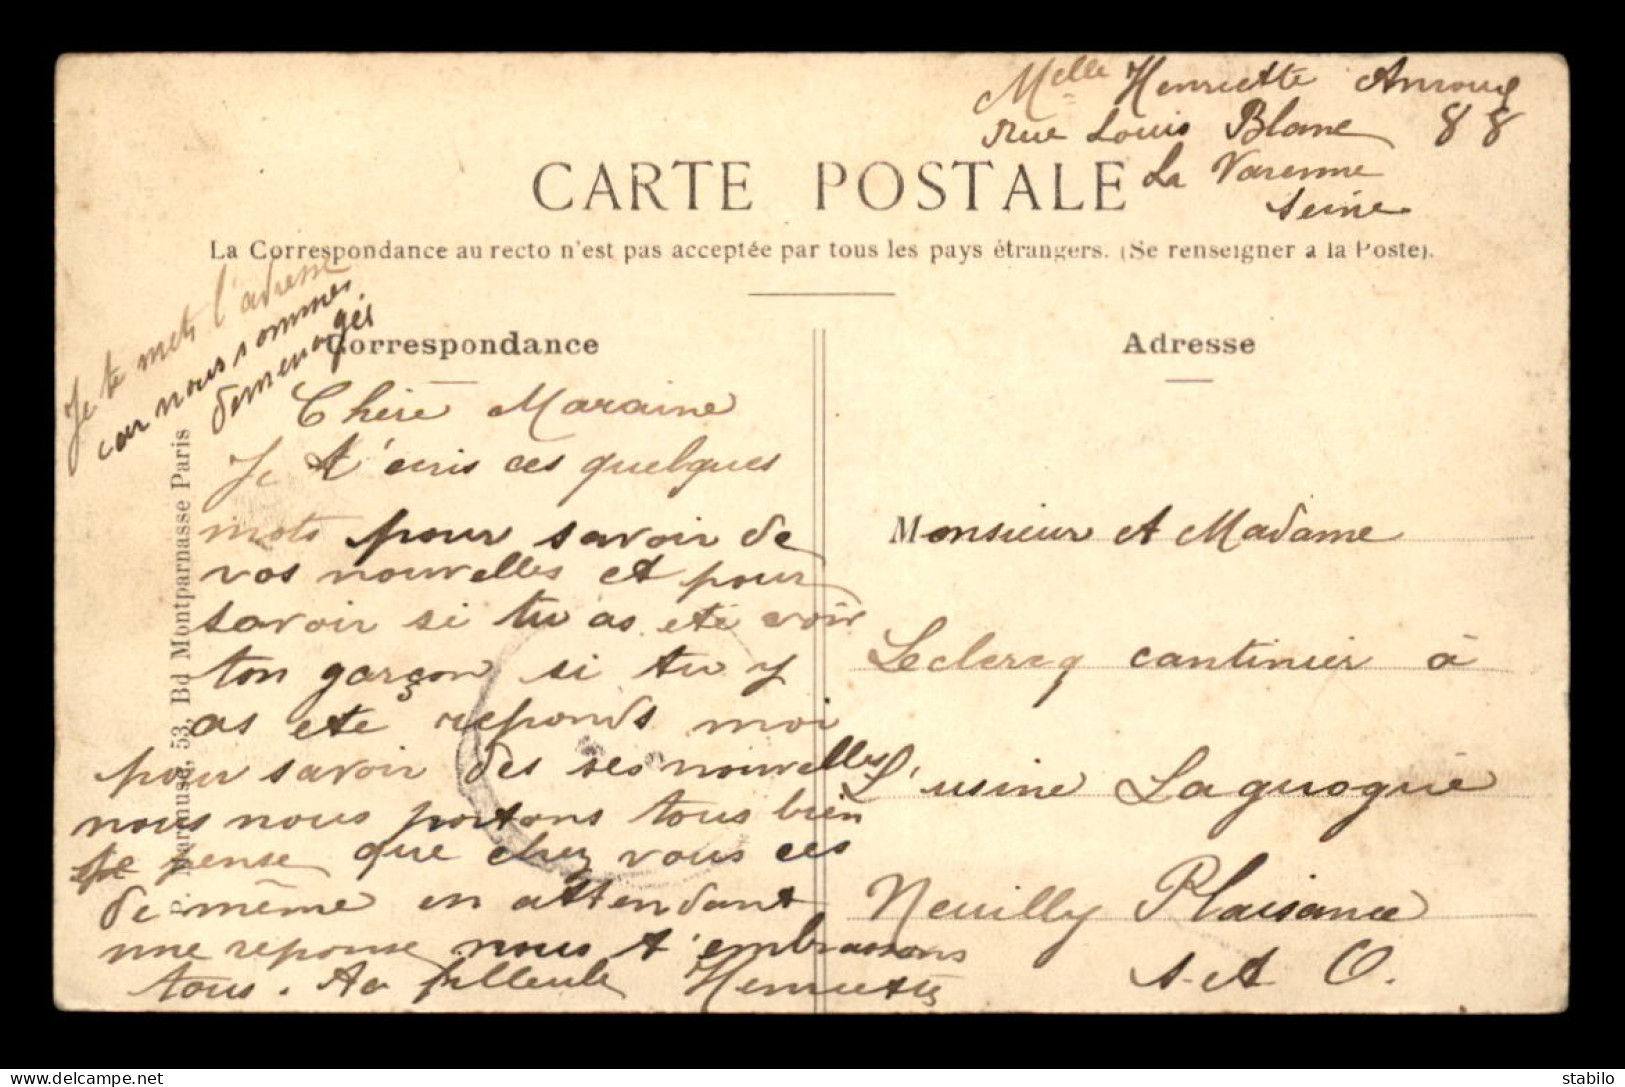 Melle Henriette
rue Louis Blanc 88
La Varenne
Seine
CARTE POSTALE
La Correspondance au recto n'est pas acceptée par tous les pays étrangers. (Se renseigner a la Poste).
Je te mets l'adresse
car nous sommes
demenagés
Correspondance
Chère Maraine
Je t'ecris ces quelques
mots pour savoir de
vos nouvelles et pour
savoir si tu as eté voir
ton garçon si tu y
as eté reponds moi
pour savoir des ses nouvelles
nous nous portons tous bien
je pense que chez vous ces
de même en attendant
une reponse nous t'embrassons
tous. Ta filleule Henriette
53, Bd Montparnasse Paris
Adresse
Monsieur et Madame
Leclercq cantinier à
L'usine Laguiognie
Neuilly Plaisance
S. et O.
stabilo